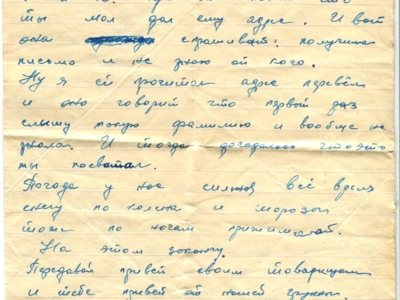 ты мол дал ему адре. И вот
она спрашивает: получила
письмо и не знаю от кого.
Ну я ей прочитал адре
и она говорит что первый раз
слышу такую фамилию и вообще не
знала. И тогда догадалась что это
ты
Погода у нас сильная всё время
снегу по колена и морозы
тоже по ночам прижимает.
На этом закончу.
Передавай привет своим товарищам
и тебе привет от нашей группы